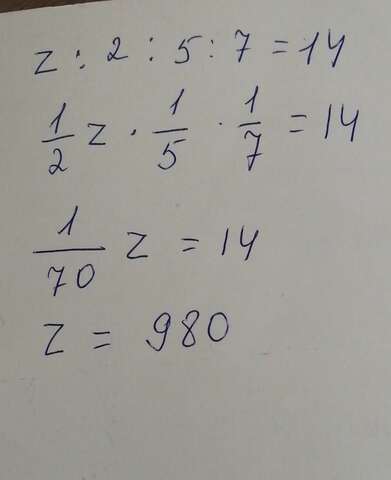 z : 2 : 5 : 7 = 14
1/2 z · 1/5 · 1/7 = 14
1/70 z = 14
z = 980